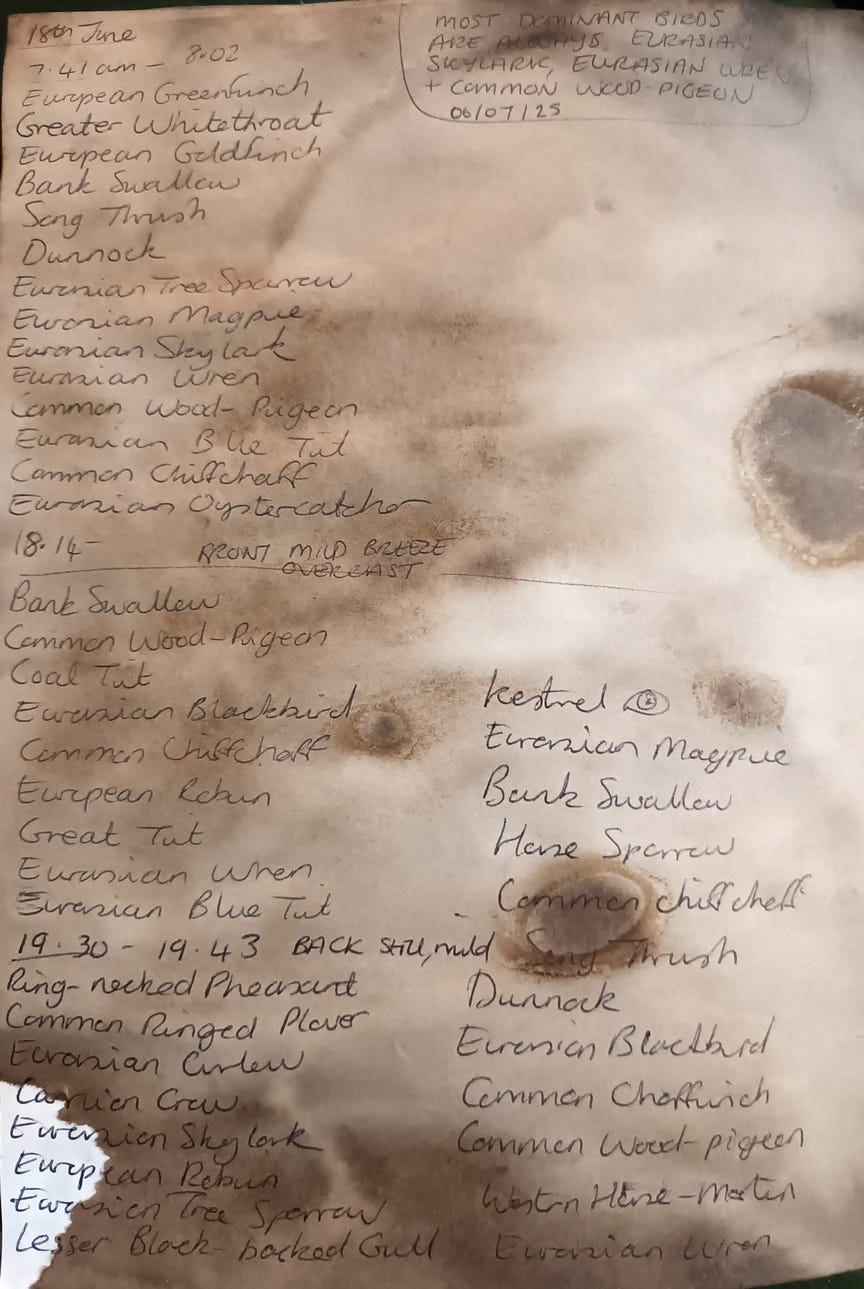 18th June
7.41 am - 8.02
European Greenfinch
Greater Whitethroat
European Goldfinch
Bank Swallow
Song Thrush
Dunnock
Eurasian Tree Sparrow
Eurasian Magpie
Eurasian Skylark
Eurasian Wren
Common Wood-Pigeon
Eurasian Blue Tit
Common Chiffchaff
Eurasian Oystercatcher
18.14- FRONT MILD BREEZE
OVERCAST
Bank Swallow
Common Wood-Pigeon
Coal Tit
Eurasian Blackbird
Common Chiffchaff
European Robin
Great Tit
Eurasian Wren
Eurasian Blue Tit
19.30 - 19.43 BACK STILL, mild
Ring-necked Pheasant
Common Ringed Plover
Eurasian Curlew
Carrion Crow
Eurasian Skylark
European Robin
Eurasian Tree Sparrow
Lesser Black-backed Gull
MOST DOMINANT BIRDS
ARE ALWAYS EURASIAN
SKYLARK, EURASIAN WREN
+ COMMON WOOD-PIGEON
06/07/25
Kestrel
Eurasian Magpie
Bank Swallow
House Sparrow
Common Chiffchaff
Song Thrush
Dunnock
Eurasian Blackbird
Common Chaffinch
Common Wood-pigeon
Western House-Martin
Eurasian Wren